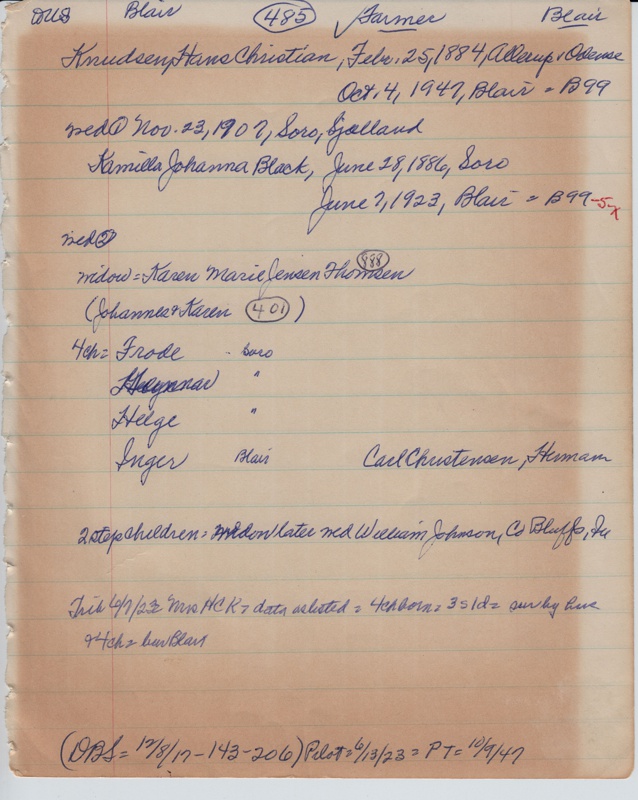 DUS Blair 485 Farmer Blair
Knudsen, Hans Christian, Febr. 25, 1884, Allerup, Odense
Oct. 4, 1947, Blair = B99
med ① Nov. 23, 1907, Soro, Sjælland
Kamilla Johanna Black, June 28, 1886, Soro
June 7, 1923, Blair = B99 -5-
med ②
888
widow = Karen Marie Jensen Thomsen
(Johannes & Karen 401)
4ch = Frode - Soro
"
Helge "
Inger Blair Carl Christensen, Herman
2 stepchildren = widow later med William Johnson, Co Bluffs, Ia
Trib 6/7/23 = Mrs HCK = data as listed = 4ch born = 3s1d = sur by hus
& 4ch = bur Blair
(DBS = 12/8/17-143-206) Pilot = 6/13/23 = PT = 10/9/47